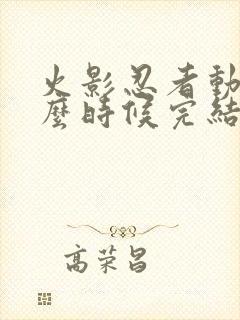 火影忍者動
麼時候完結
高荣昌